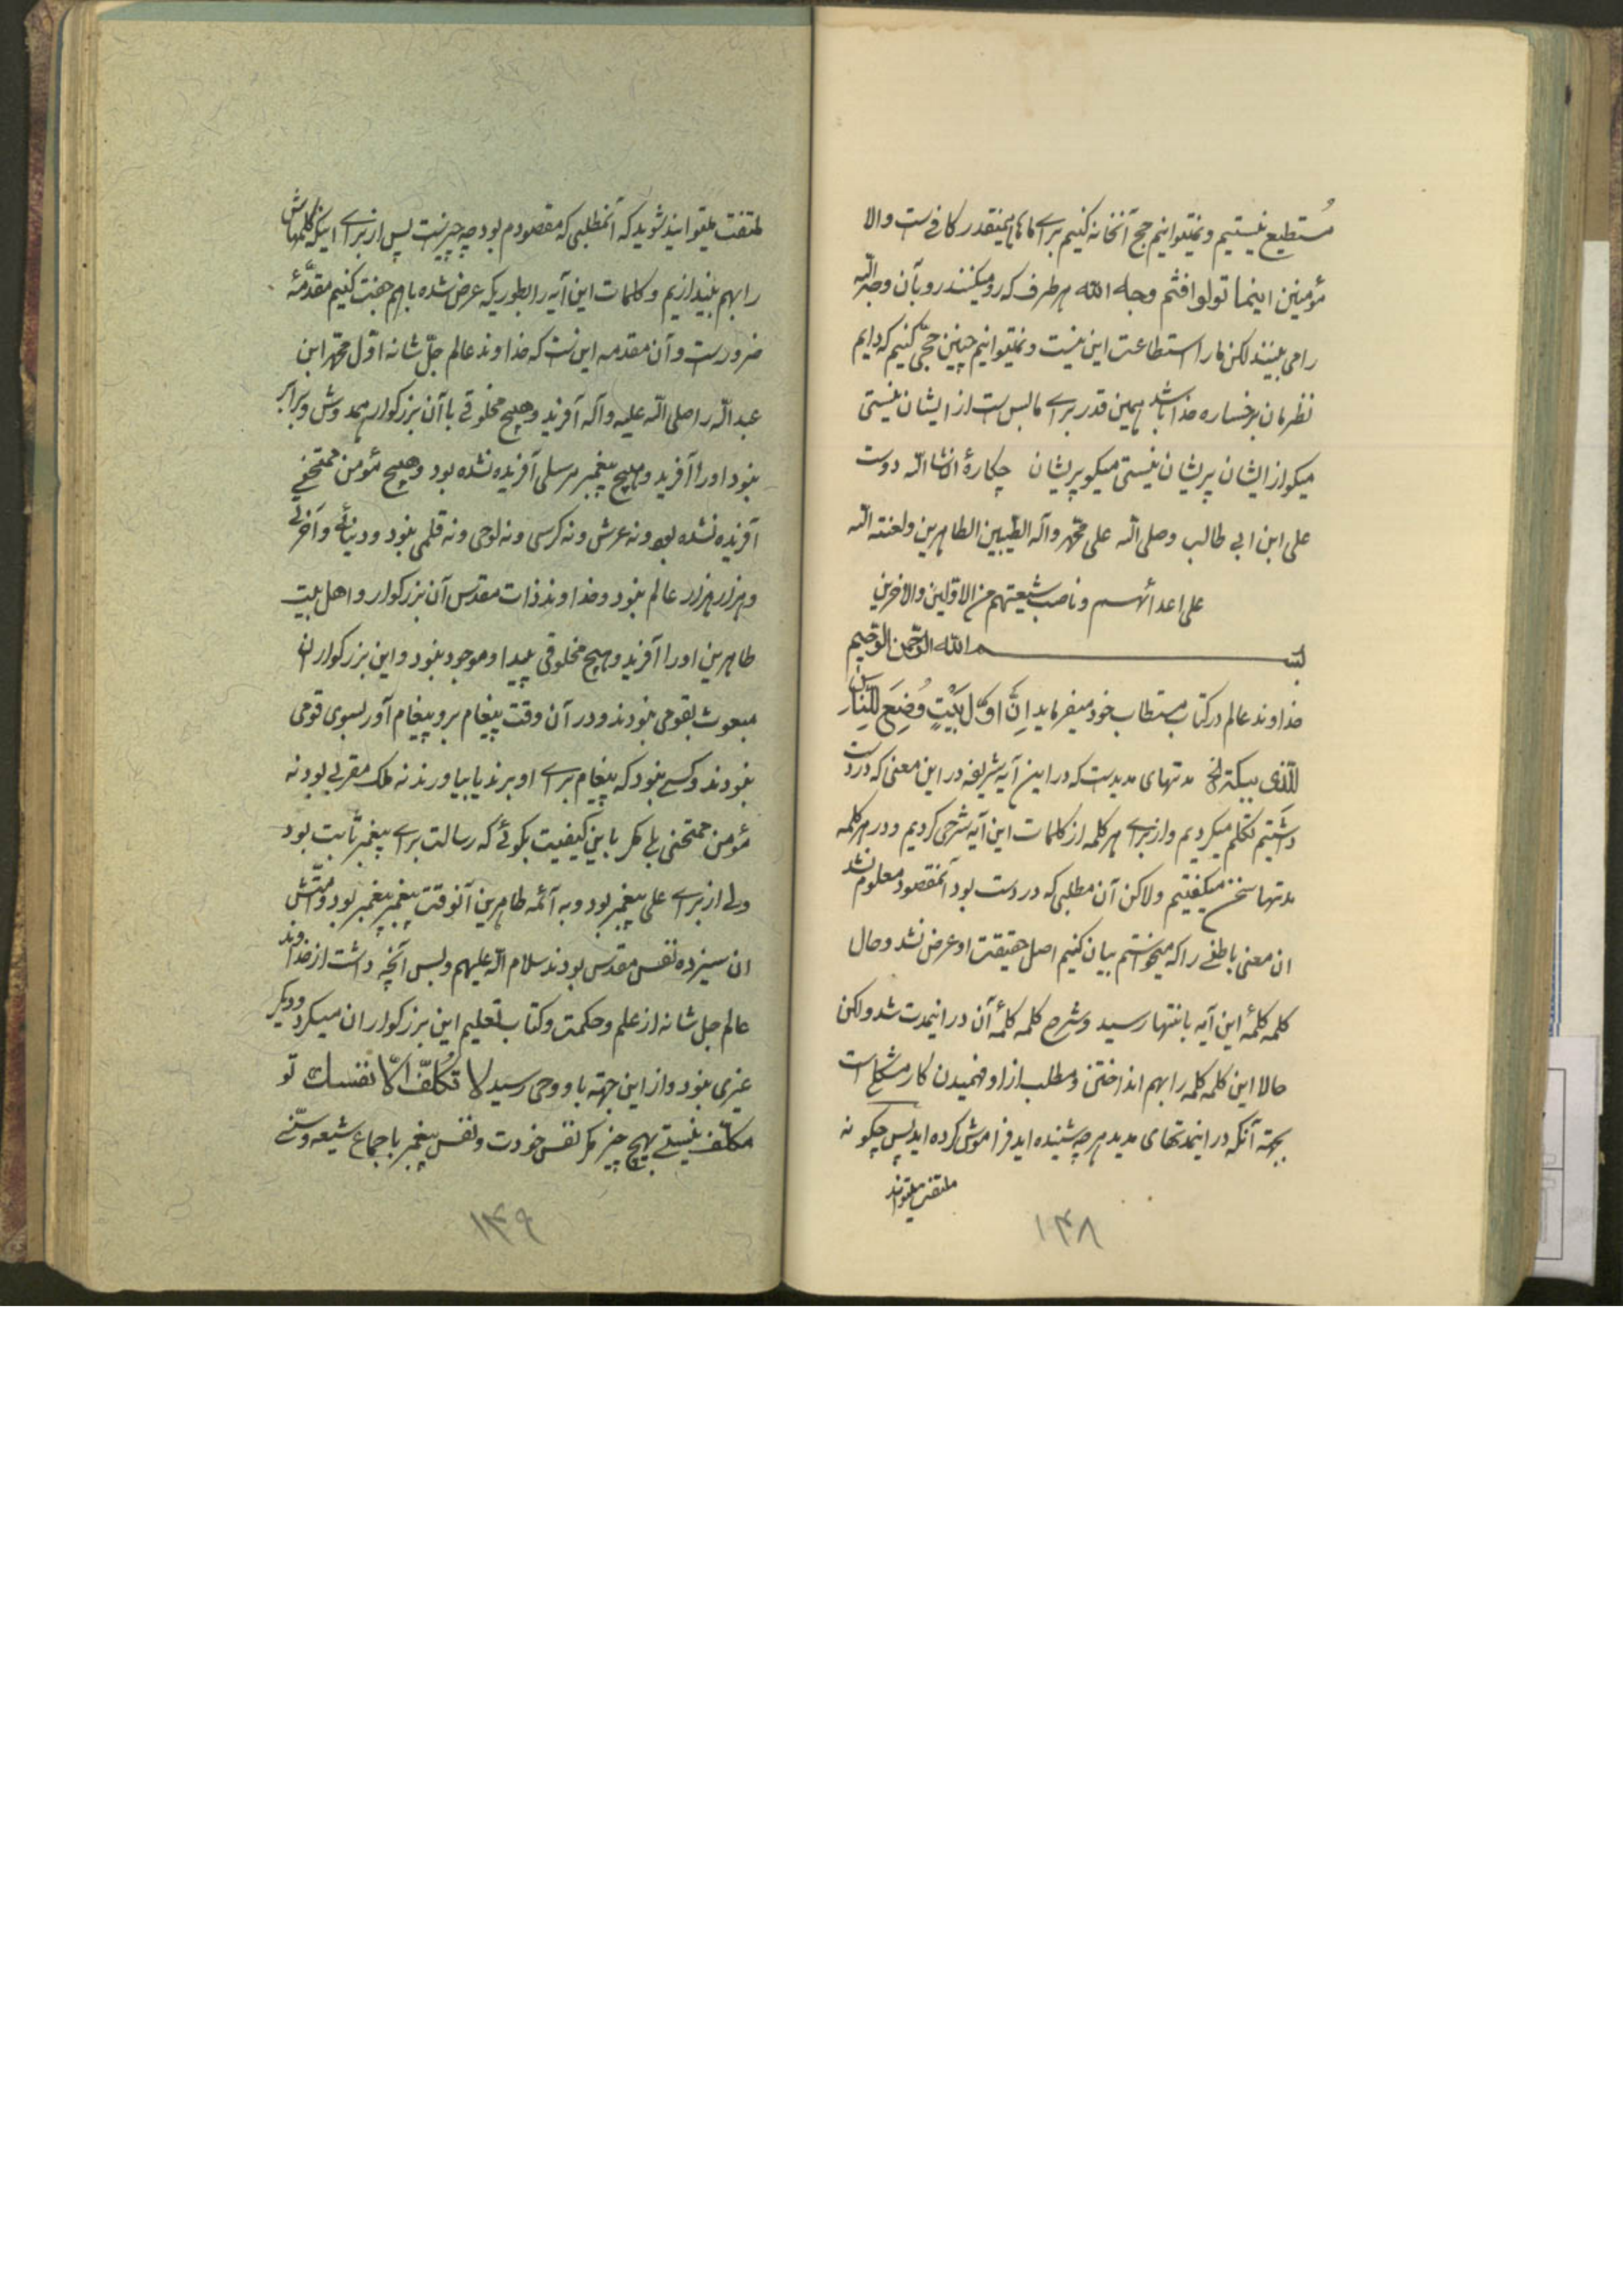 مُستطیع نیستیم و نمیتوانیم حج آنخانه کنیم برای ماها همینقدر کافی ست والا
مؤمنین اینما تولوا فثم وجه الله هر طرف که رو میکنند رو بآن وجه الله
را می بینند لکن ما را استطاعت این نیست و نمیتوانیم چنین حجّی کنیم که دایم
نظرمان بر رخساره خدا باشد همین قدر برای ما بس ست از ایشان نیستی
میکو از ایشان پریشان نیستی میکو پریشان چکارهٔ انشاء الله دوست
علی ابن ابی طالب وصلی الله علی محمّد وآله الطّیبین الطاهرین ولعنة الله
علی اعدائهم وناصب شیعتهم من الاوّلین والاخرین
بسم الله الرّحمن الرّحیم
خداوند عالم در کتاب مستطاب خود میفرماید اِنَّ اوّلَ بَیْتٍ وُضِعَ لِلنّاسِ
للّذی ببکة الخ مدتهای مدیدیست که در این آیه شریفه در این معنی که در دست
داشتیم تکلم میکردیم و از برای هر کلمه از کلمات این آیه شرحی کردیم و در هر کلمه
مدتها سخن میکفتیم ولاکن آن مطلبی که در دست بود آنمقصود معلوم نشد
ان معنی باطنی را که میخواستم بیان کنیم اصل حقیقت او عرض نشد و حال
کلمه کلمهٔ این آیه بانتها رسید و شرح کلمه کلمهٔ آن در اینمدت شد ولکن
حالا این کلمه کلمه را بهم انداختن و مطلب از او فهمیدن کار مشکلی است
بجهة آنکه در اینمدتهای مدید هر چه شنیده اید فراموش کرده اید پس چکونه
ملتفت میتوانید
۱۳۸
ملتفت میتوانید شوید که آنمطلبی که مقصودم بود چه چیز است پس از برای اینکه کلمهاش
را بهم بیندازیم و کلمات این آیه را بطوریکه عرض شده باهم جفت کنیم مقدّمهٔ
ضرورست و آن مقدمه این ست که خداوند عالم جلّ شانه اوّل محمّد ابن
عبد اللّه را صلی اللّه علیه وآله آفرید و هیچ مخلوقی با آن بزرکوار همدوش و برابر
نبود او را آفرید و هیچ پیغمبر مرسلی آفریده نشده بود و هیچ مؤمن ممتحنی
آفریده نشده بود و نه عرش و نه کرسی و نه لوحی و نه قلمی نبود و دنیائی و آخرتی
و هزار هزار عالم نبود و خداوند ذات مقدّس آن بزرکوار و اهل بیت
طاهرین او را آفرید و هیچ مخلوقی پیدا و موجود نبود و این بزرکواران
مبعوث بقومی نبودند و در آن وقت پیغام بر و پیغام آور بسوی قومی
نبودند و کسی نبود که پیغام برای او برند یا بیاورند نه ملک مقربی بود نه
مؤمن ممتحنی بلی مکر باین کیفیت بکوئی که رسالت برای پیغمبر ثابت بود
ولی از برای علی پیغمبر بود و به آئمه طاهرین آنوقت پیغمبر پیغمبر بود و امّتش
ان سیزده نفس مقدّس بودند سلام اللّه علیهم و بس آنچه داشت از خداوند
عالم جل شانه از علم و حکمت و کتاب تعلیم این بزرکواران میکرد و دیکر
غیری نبود و از این جهة باو وحی رسید لا تُکلّفُ الّا نفسك تو
مکلّف نیستی بهیچ چیز مکر نفس خودت و نفس پیغمبر باجماع شیعه و سنّی
۱۳۹